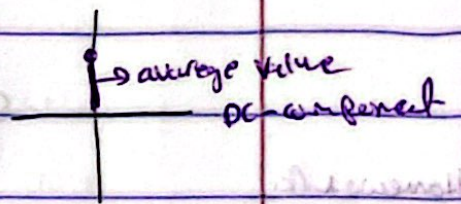 average value
DC-component